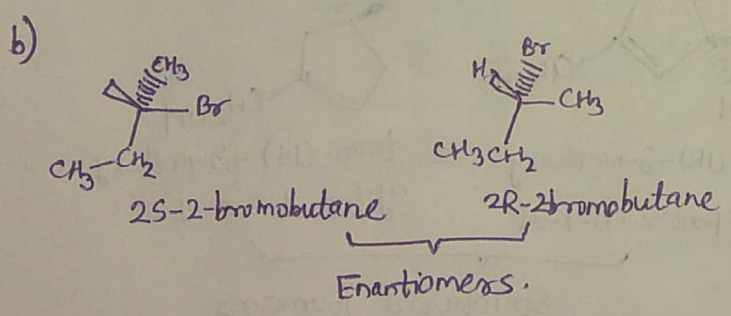 b)
CH3
Br
CH3-CH2
2S-2-bromobutane
Br
H
CH3
CH3CH2
2R-2bromobutane
Enantiomers.